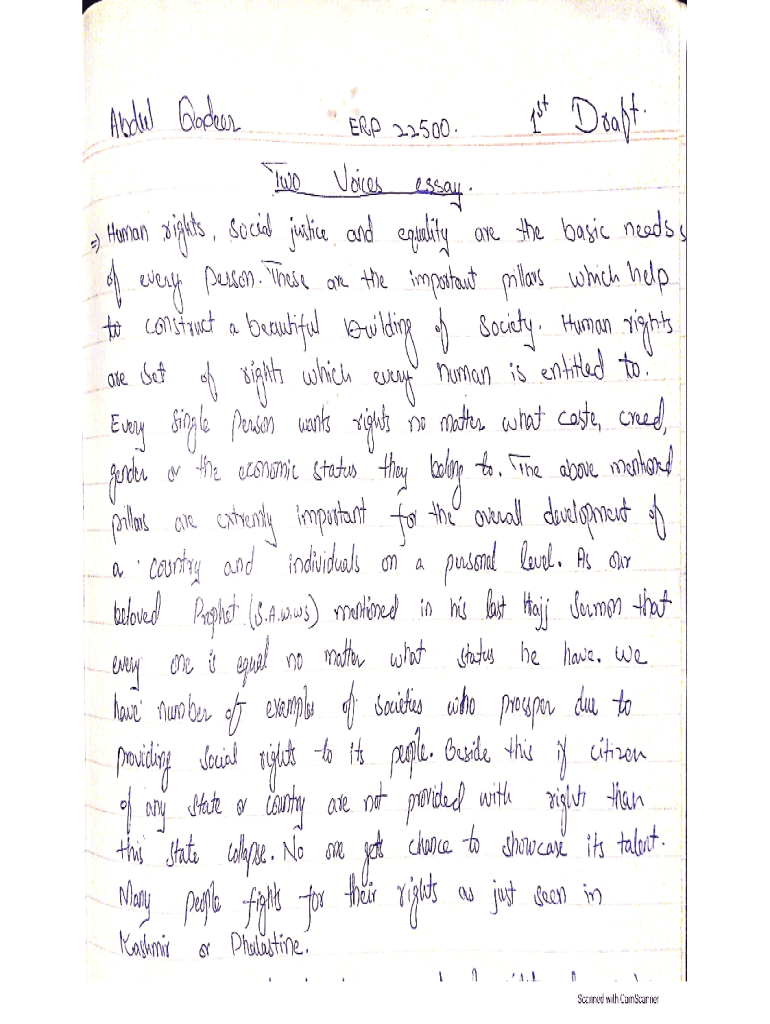 Abdul Qadeer ERP 22500. 1st Draft.
Two Voices essay.
⇒ Human rights, social justice and equality are the basic needs
of every person. These are the important pillars which help
to construct a beautiful building of society. Human rights
are set of rights which every human is entitled to.
Every single person wants rights no matter what caste, creed,
gender or the economic status they belong to. The above mentioned
pillars are extremly important for the overall development of
a country and individuals on a personal level. As our
beloved Prophet (S.A.W.W.S) mentioned in his last Hajj Sermon that
every one is equal no matter what status he have. We
have number of examples of societies who prosper due to
providing social rights to its people. Beside this if citizen
of any state or country are not provided with rights than
this state collapse. No one gets chance to showcase its talent.
Many people fights for their rights as just seen in
Kashmir or Phalastine.
Scanned with CamScanner